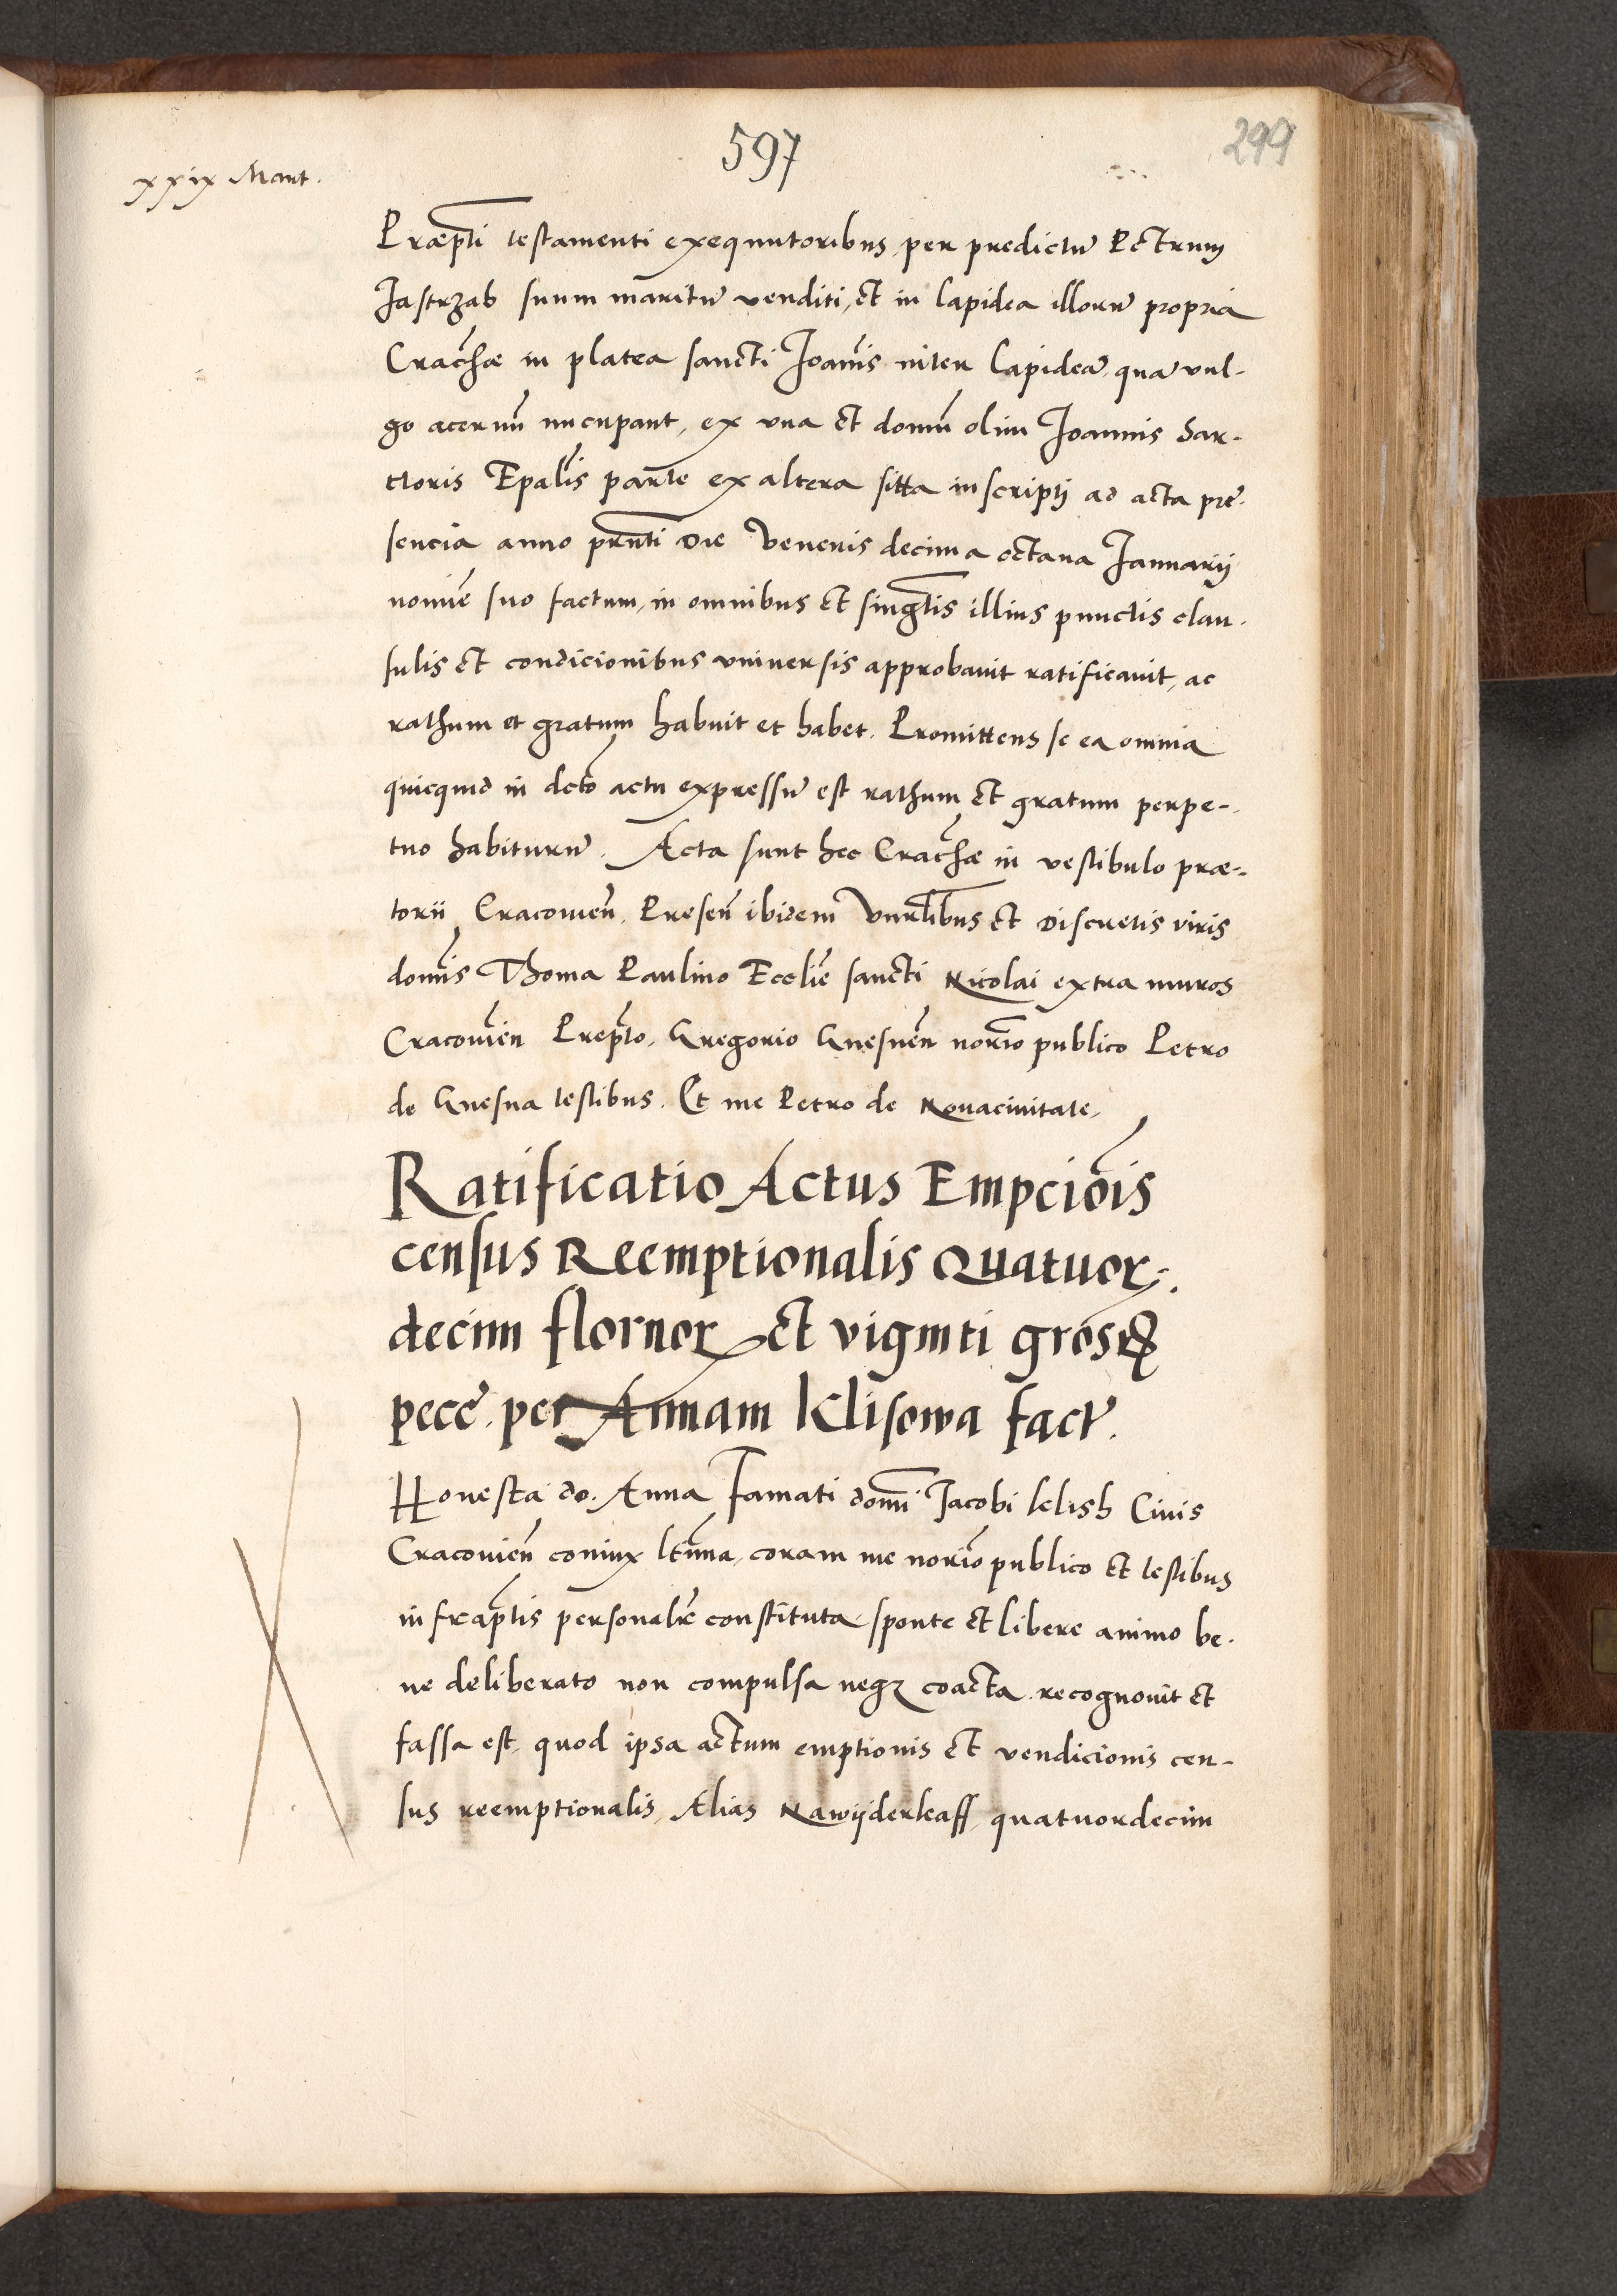 597
299
xxix Mart.
Præpti testamenti exequutoribus per predictū Petrum
Jastrzab suum maritū venditi, et in lapidea illorū propria
Cracħæ in platea sancti Joānis inter lapideā, quā vul-
go acernū nūcupant, ex vna et domū olim Joannis Sar-
ctoris Epalis parte ex altera sitta inscripti ad acta præ-
sencia anno prnti Die Veneris decima octaua Januarij
nomīe suo factum, in omnibus et singlis illius punctis clau-
sulis et condicionibus vniuersis approbauit ratificauit, ac
rathum et gratum habuit et habet. Promittens se ea omnia
quicquid in dcto actu expressū est rathum et gratum perpe-
tuo habiturū. Acta sunt hec Cracħæ in vestibulo præ-
torii Cracouieñ. Preseñ ibidem Vnrlibus et Discretis viris
domīs Thoma Paulino Eccliē sancti Nicolai extra muros
Cracouieñ Prepto, Gregorio Gnesneñ norio publico Petro
de Gnesna testibus. Et me Petro de Nouaciuitate,
Ratificatio Actus Empciōis
census Reemptionalis Quatuor-
decim flornor et viginti grosꝝ
pecē. per Annam Klisowa fact.
Honesta do. Anna Famati domī Jacobi kelish Ciuis
Cracouieñ coniux ltīma, coram me norio publico et testibus
infraptis personalr̄ constituta sponte et libere animo be-
ne deliberato non compulsa neqꝫ coacta recognouit et
fassa est, quod ipsa actum emptionis et vendicionis cen-
sus reemptionalis, Alias Nawijderkaff, quatuordecim